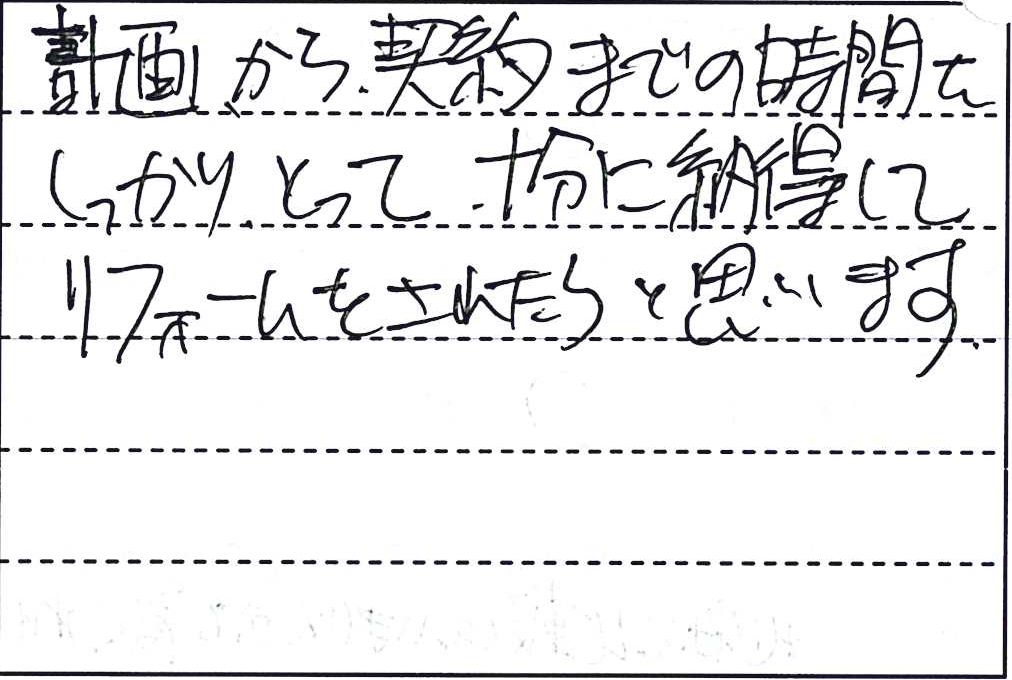 計画から契約までの時間を
しっかりとって十分に納得して
リフォームをされたらと思います。